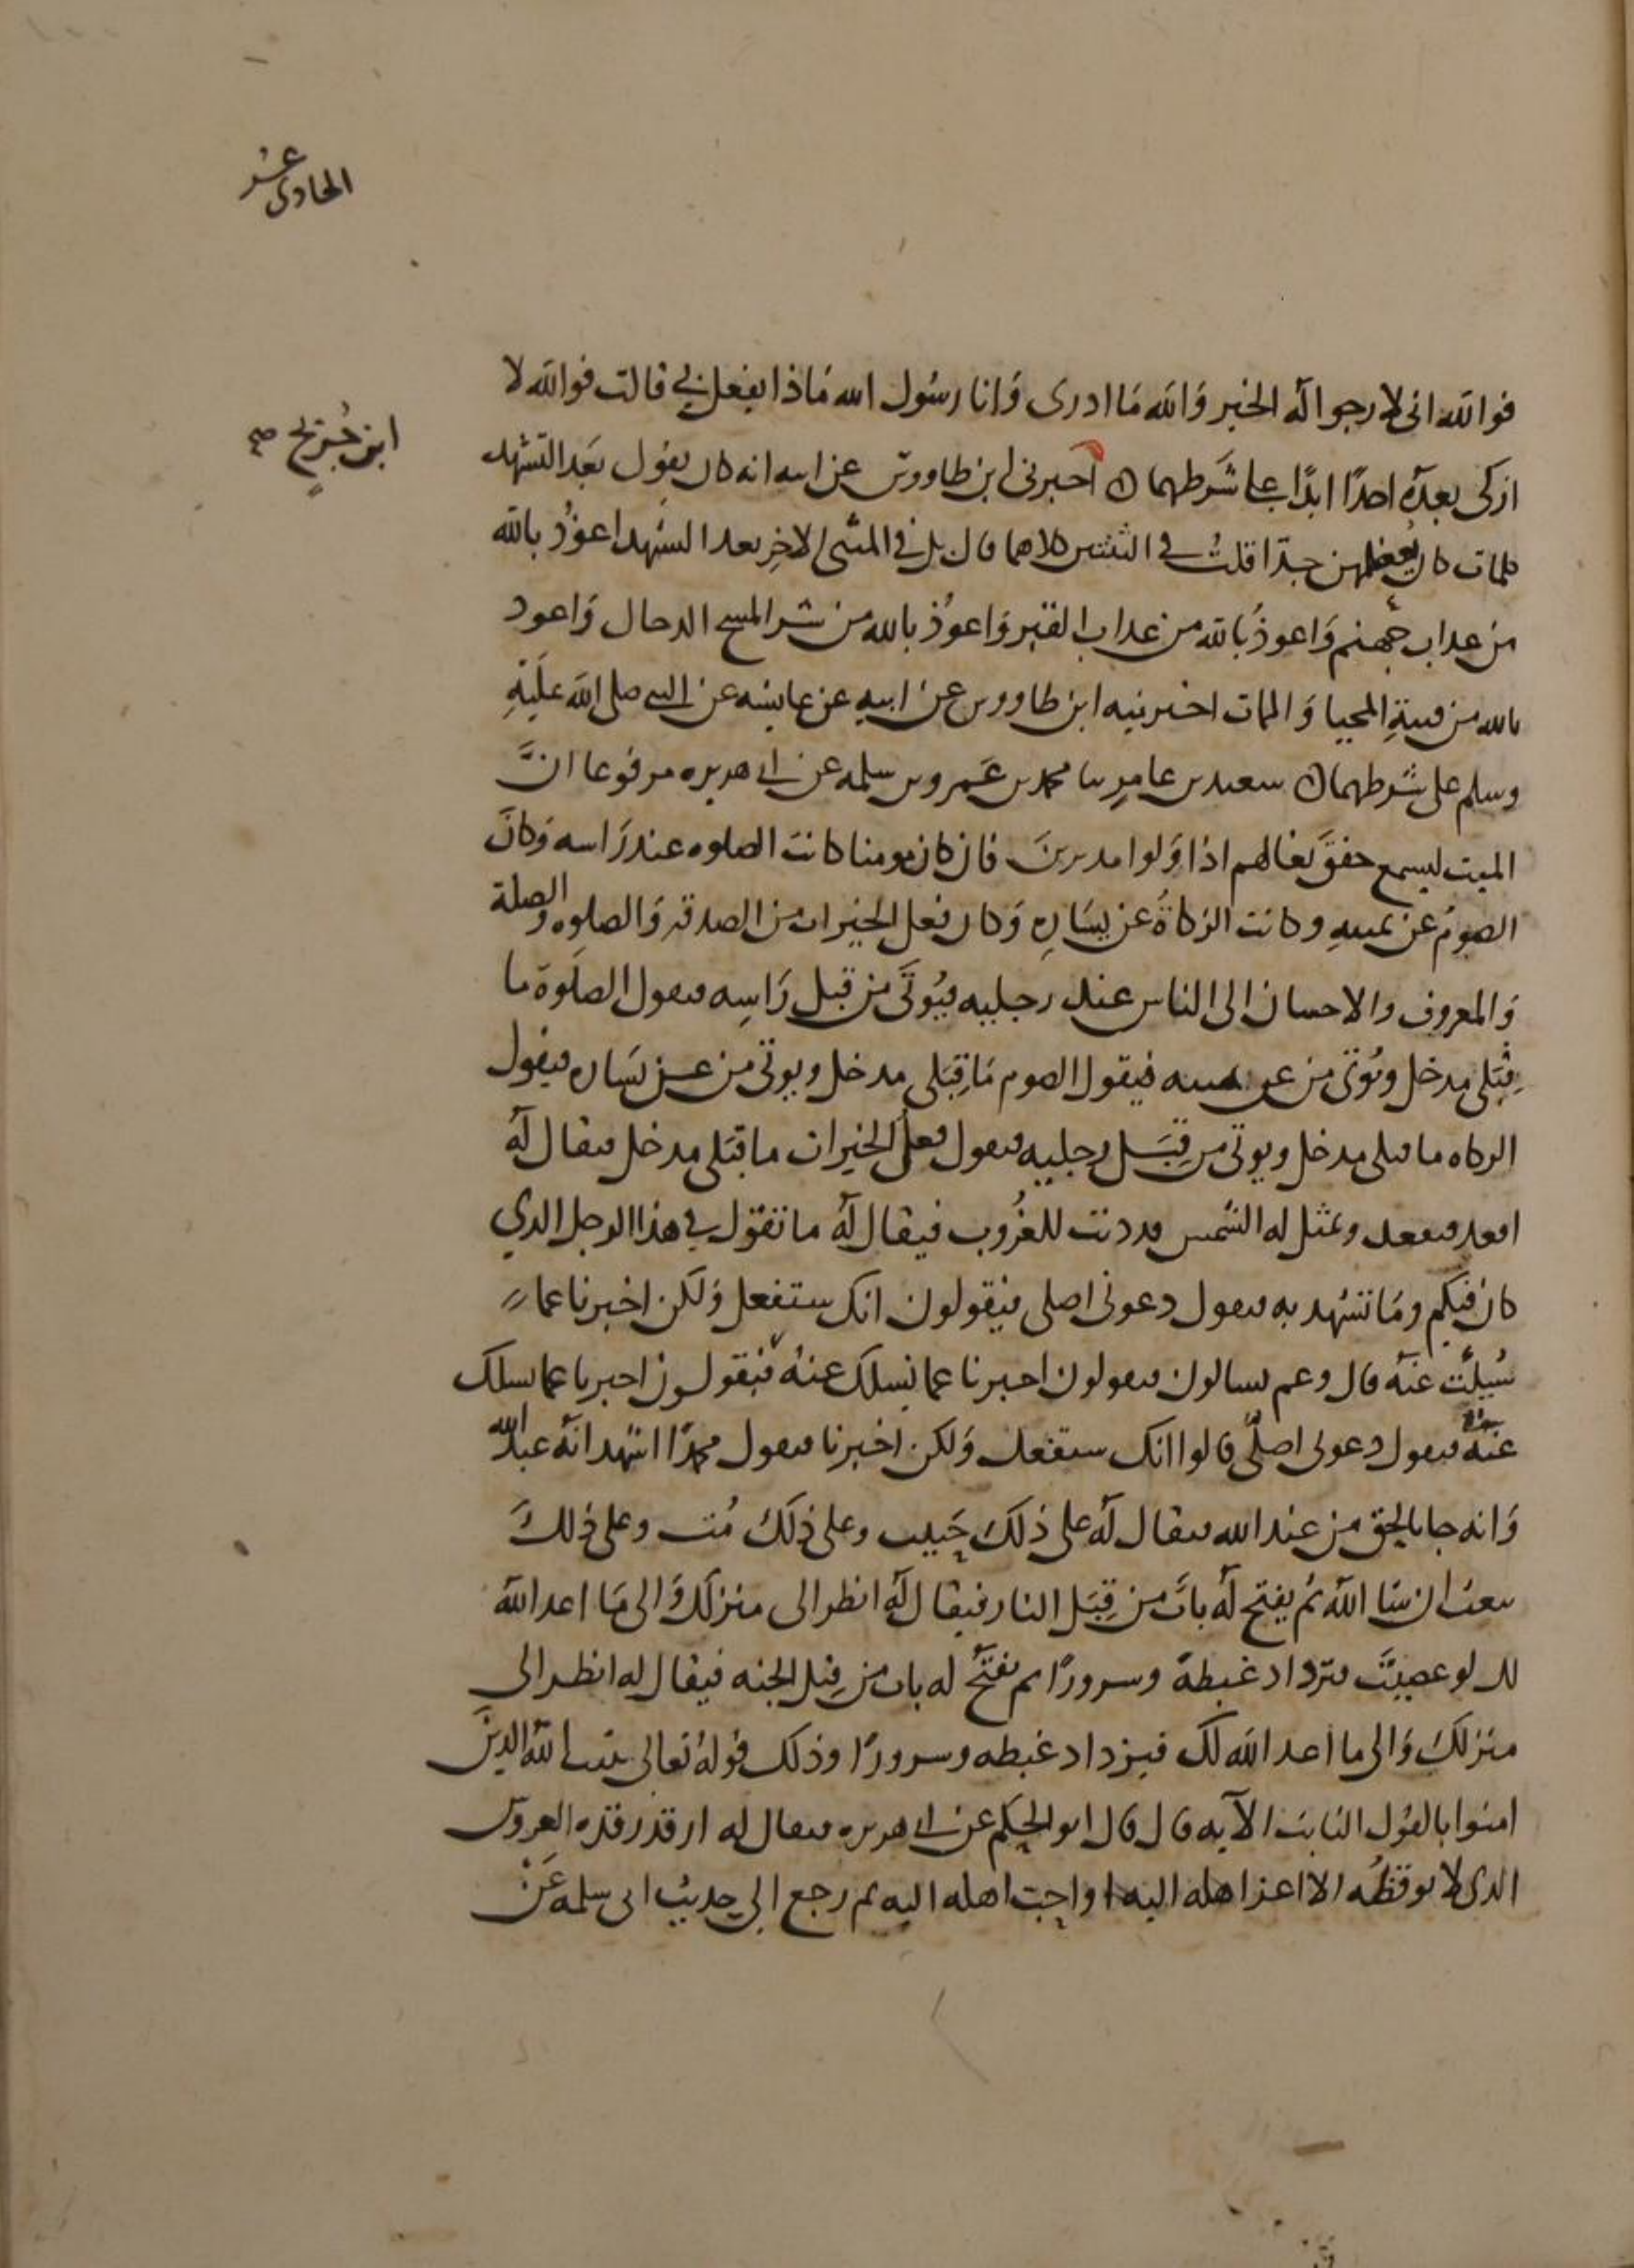 الحادى عشر
فوالله انى لارجوا له الخير وَالله مَا ادرى وَانا رسُول الله مَاذا يفعل بي قالت فوالله لا
ابن جُريج صح
ازكى بعدَه احدًا ابدًا على شَرطهما ۞ اخبرنى ابن طاووس عن ابيه انه كان يقول بَعد التشهد
كلمات كان يُعظمهن جدّا قلتُ في الثنتين كلاهما قال بل في المثنى الاخِر بعد التشهد اعوذُ بالله
من عداب جهنم وَاعوذُ بَالله من عداب القبر وَاعوُذ بالله من شر المسح الدجال وَاعود
بالله من فتنةِ المحيا وَالممات اخبرنيه ابن طاووس عن ابيهِ عن عايشه عن النبي صلى الله عليَهِ
وسلم على شرطهما ۞ سعيد بن عامرٍ ثنا محمد بن عَمرو بن سلمه عن ابى هريره مرفوعا انَّ
الميت ليسمع خفقَ نعالهم اذا وَلوا مدبرينَ فان كان مومنا كانت الصلوه عند رَاسه وَكانَ
الصومُ عن يمينهِ وكانت الزكاةُ عن يسَارهِ وَكان فعل الخيرات من الصدقه وَالصلوه والصلة
وَالمعروف والاحسان الى الناس عند رجليه فيُوتَى من قبل رَاسِه فيقول الصلَوة ما
قِبَلى مدخل ويُوتى من عن يمينه فيقول الصوم مَا قِبَلى مدخل ويوتى من عن يسَاره فيقول
الزكاه ما قبلى مدخل ويوتى من قِبَل رجليه فيقول فعلَ الخيرات ما قبَلى مدخل فيقال لَهُ
اقعد فيقعد وتمثل له الشمس قد دنت للغُروب فيقال لَهُ ما تقوُل في هذا الرجل الدي
كان فيكم ومَا تشهد به فيقول دعونى اصلى فيقولون انك ستفعل وَلكن اخبرنا عما
سُيلتَ عنَهُ قال وعم تسالون فيقولون اخبرنا عما نسلك عنه فيقولون اخبرنا عما نسلك
عنهُ فيقول دعونى اصلّى قالوا انك ستفعل وَلكن اخبرنا فيقول محمدًا اشهد انَهُ عبد الله
وَانه جا بالحق من عند الله فيقال لَهُ على ذلكَ حَييت وعلى ذلكَ مُت وعلى ذلكَ
تبعث ان شا اللهُ ثم يفتح لَهُ بابٌ من قِبَل النار فيقال لَهُ انظر الى منزلكَ وَالى مَا اعد اللهُ
لك لو عصيتَ فيزداد غبطةً وسرورًا ثم يفتَحُ له باب من قِبل الجنه فيقال له انظر الى
منزلكَ وَالى ما اعد الله لكَ فيزداد غبطه وسرورًا وذلك قولهُ تعالى يثبت اللهُ الدينَ
امنوا بالقول الثابت الآيه قال قال ابو الحكم عن ابى هريره فيقال له ارقد رقده العروس
الدى لا يوقظه الا اعز اهله اليه او احب اهله اليه ثم رجع الى حديث ابى سلمه عَنْ